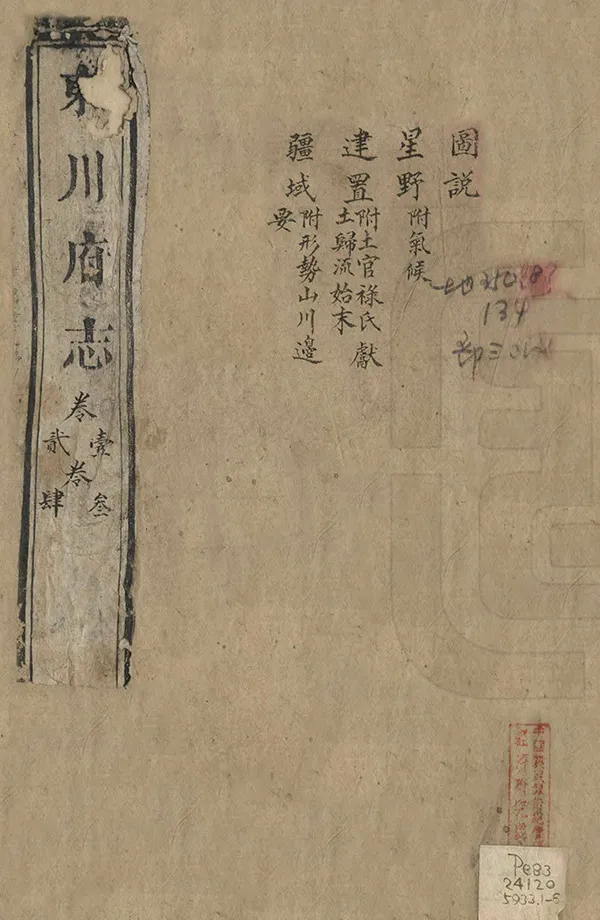 圖說
星野附氣候
建置附土官祿氏獻
土歸流始末
疆域附形勢山川邊
要
東川府志
卷壹
貳
卷叁
肆
134
Pe83
24120
5933.1-6